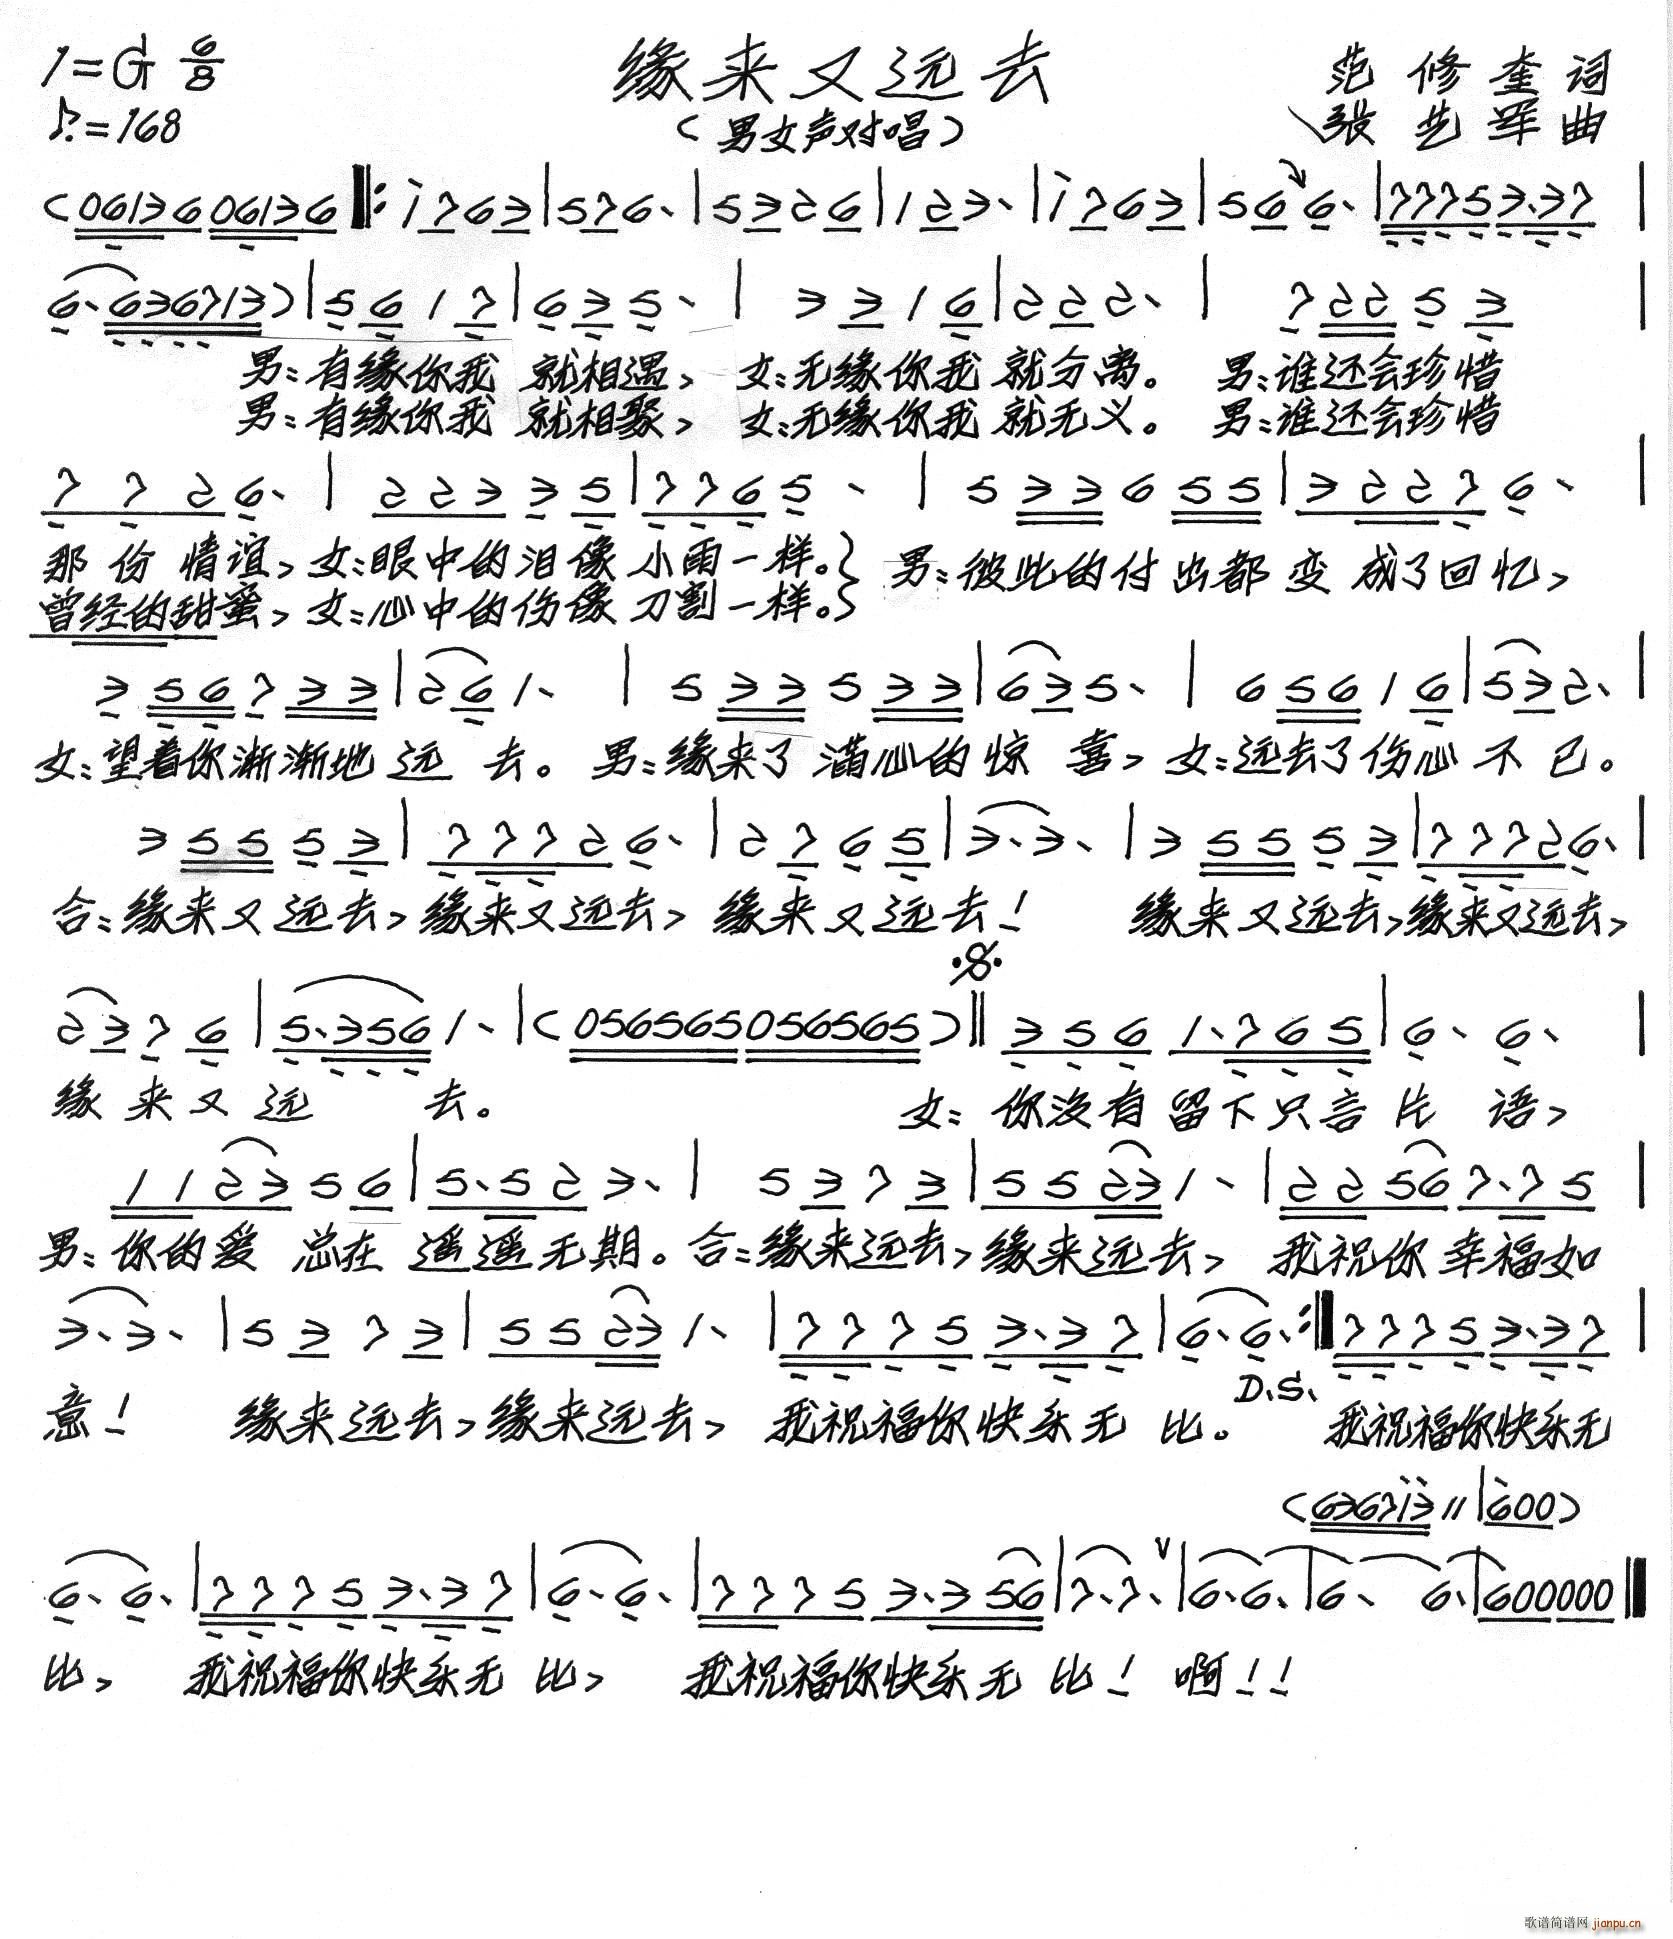 1=G 6/8
缘来又远去
范修奎词
♪.=168
(男女声对唱)
张艺军曲
(0613606136‖:i763|576.|5326|123.|i763|566.|77753.37|
6.6367 13)|5617|635.|3316|222.|72253|
男:有缘你我 就相遇, 女:无缘你我 就分离。 男:谁还会珍惜
男:有缘你我 就相聚, 女:无缘你我 就无义。 男:谁还会珍惜
7726.|22335|7765.|533655|32276.|
那份情谊,女:眼中的泪像 小雨一样。} 男:彼此的付出都变成了回忆,
曾经的甜蜜,女:心中的伤像 刀割一样。}
356733|261.|533533|635.|65616|532.|
女:望着你渐渐地远去。 男:缘来了满心的惊喜, 女:远去了伤心不已。
35553|77726.|2765|3.3.|35553|77726.|
合:缘来又远去,缘来又远去, 缘来又远去! 缘来又远去,缘来又远去,
2376|5.3561.|(056565056565)‖3561.765|6.6.|
缘来又远 去。 女:你没有留下只言片语,
112356|5.523.|5373|55231.|22567.75|
男:你的爱 总在 遥遥无期。合:缘来远去,缘来远去, 我祝你幸福如
3.3.|5373|55231.|77753.37|6.6.:‖77753.37|
D.S.
意! 缘来远去,缘来远去, 我祝福你快乐无比。 我祝福你快乐无
(6367i3〃|600)
6.6.|77753.37|6.6.|77753.356|7.7.∨|6.6.|6.6.|600000‖
比, 我祝福你快乐无比, 我祝福你快乐无比!啊!!
歌谱简谱网 jianpu.cn